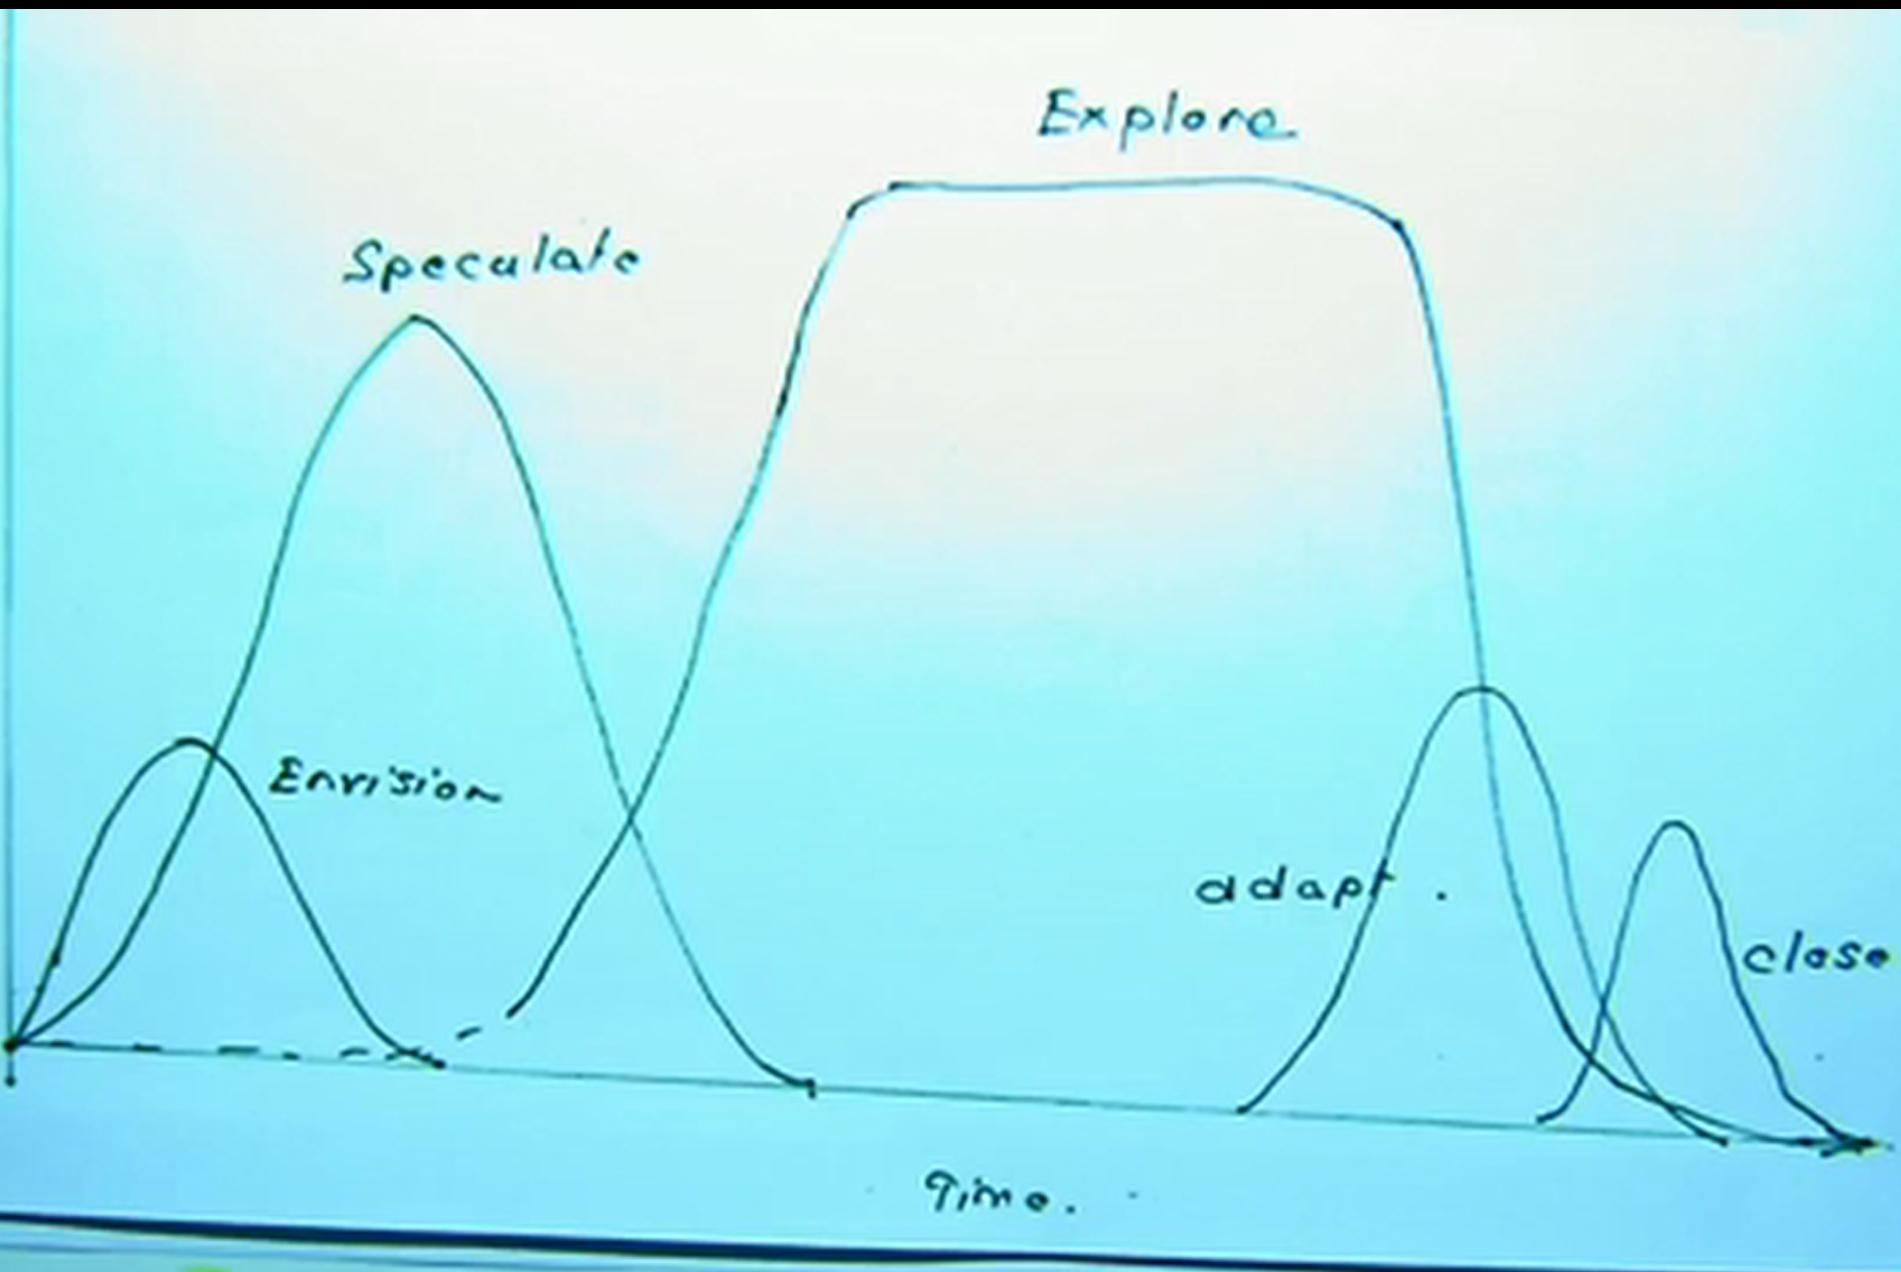 Explore
Speculate
Envision
adapt.
close
Time.